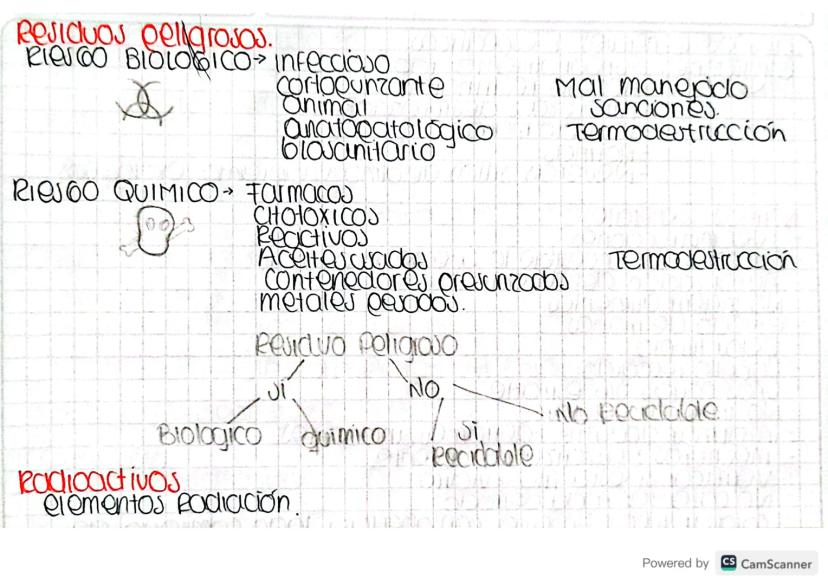 Residuos peligrosos.
RIESGO BIOLOGICO → infeccioso
cortopunzante
animal
anatopatológico
biosanitario
Mal manejado
sanciones.
Termodestrucción
RIESGO QUIMICO → Farmacos
Citotoxicos
Reactivos
Aceites usados
contenedores presurizados
metales pesados.
Termodestrucción
Residuo Peligroso
SI
NO
Biologico
quimico
Si
Reciclable
No Reciclable
Radioactivos
elementos Radiación.
Powered by CS CamScanner